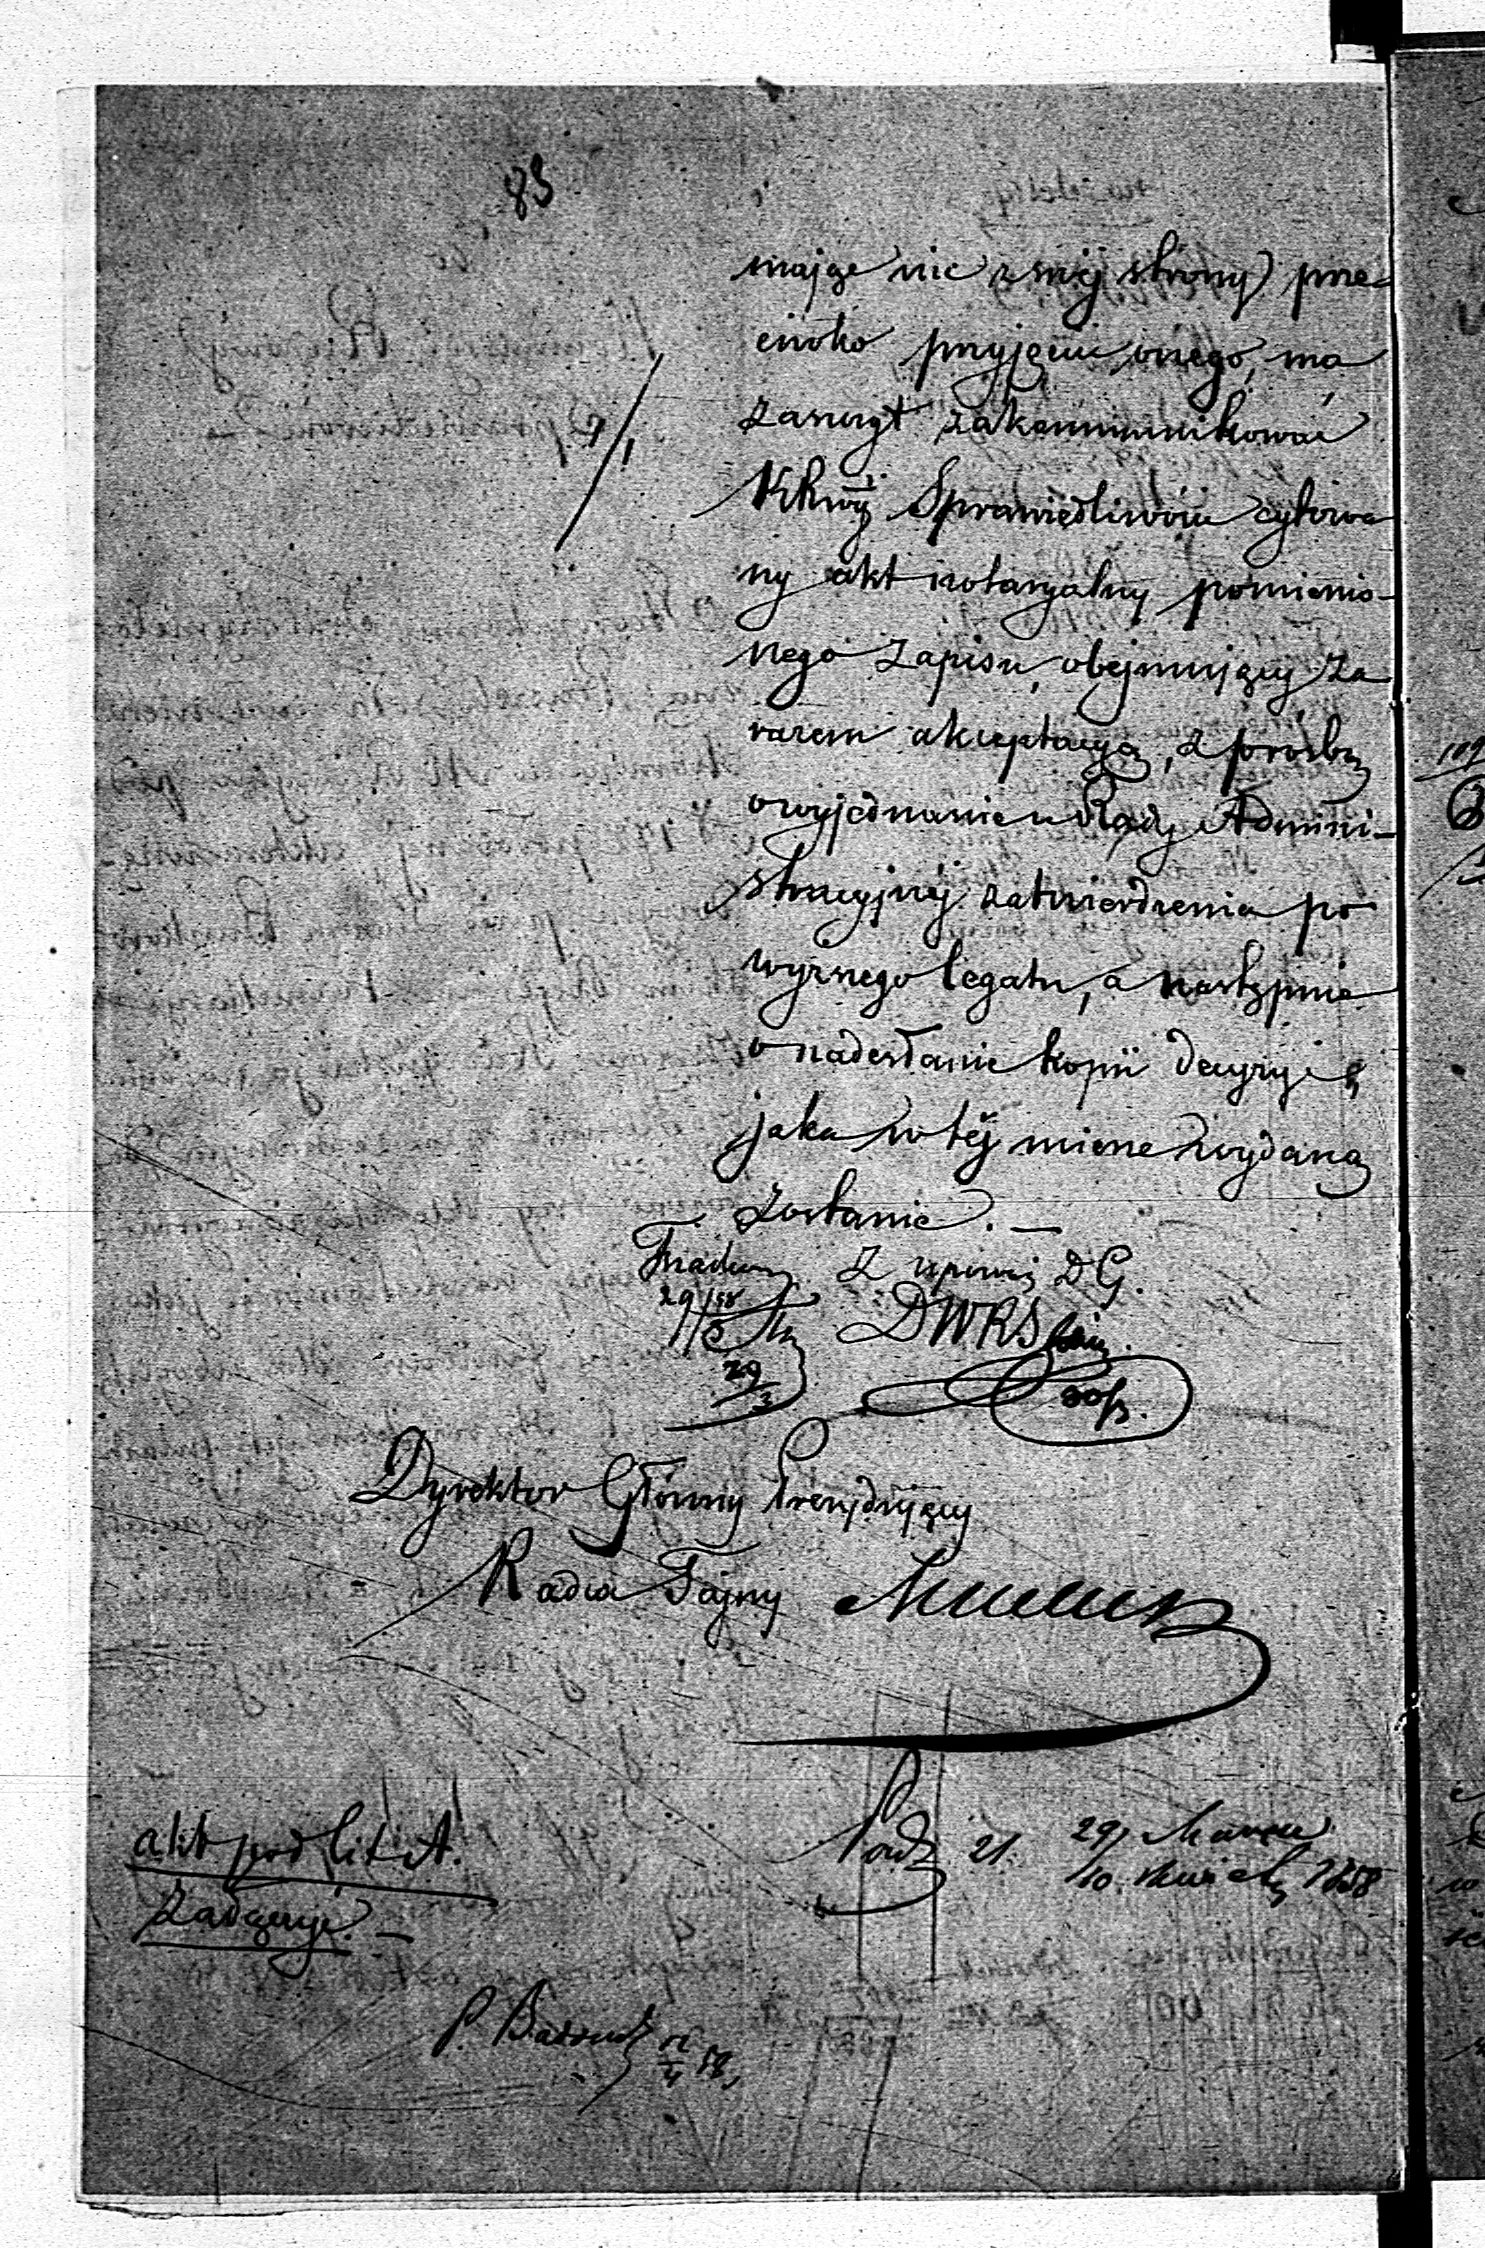 83
mając nic z swéj strony prze-
ciwko przyjęciu onego, ma
zaszczyt zakommunikować
KRwéj Sprawiedliwości cytowa-
ny akt notaryalny pomienio-
nego zapisu, obejmujący za-
razem akceptacyą, z prośbą
o wyjednanie u Rady Admini-
stracyjnéj zatwierdzenia po-
wyższego legatu, a następnie
o nadesłanie kopii decyzyi
jaka w téj mierze wydaną
zostanie. —
Z upoważ D G.
29/58
DWRS
29/3
30/3.
Dyrektor Główny Prezydujący
Radca Tajny
akt pod lit A.
załączyć. —
21. 29 Marca
10 Kwiet 1858
P.